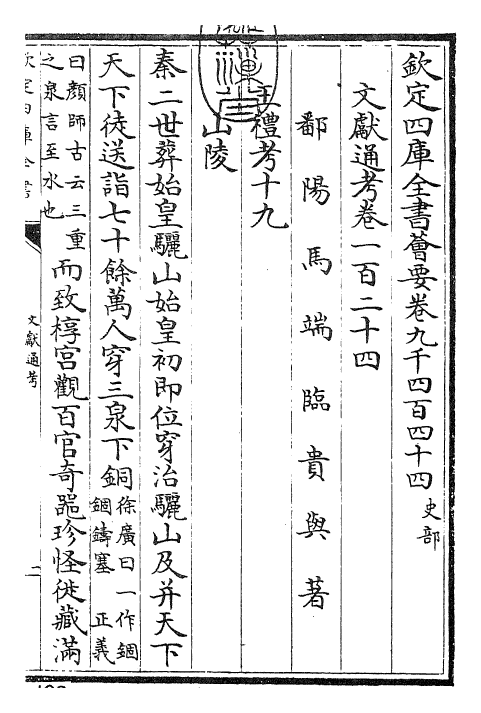 欽定四庫全書薈要卷九千四百四十四 史部
文獻通考卷一百二十四
鄱陽馬端臨貴與著
王禮考十九
山陵
秦二世葬始皇驪山始皇初即位穿治驪山及并天下
天下徒送詣七十餘萬人穿三泉下銅徐廣曰一作錮錮鑄塞 正義
曰顔師古云三重之泉言至水也而致椁宮觀百官奇器珍怪徙藏滿
欽定四庫全書
文獻通考